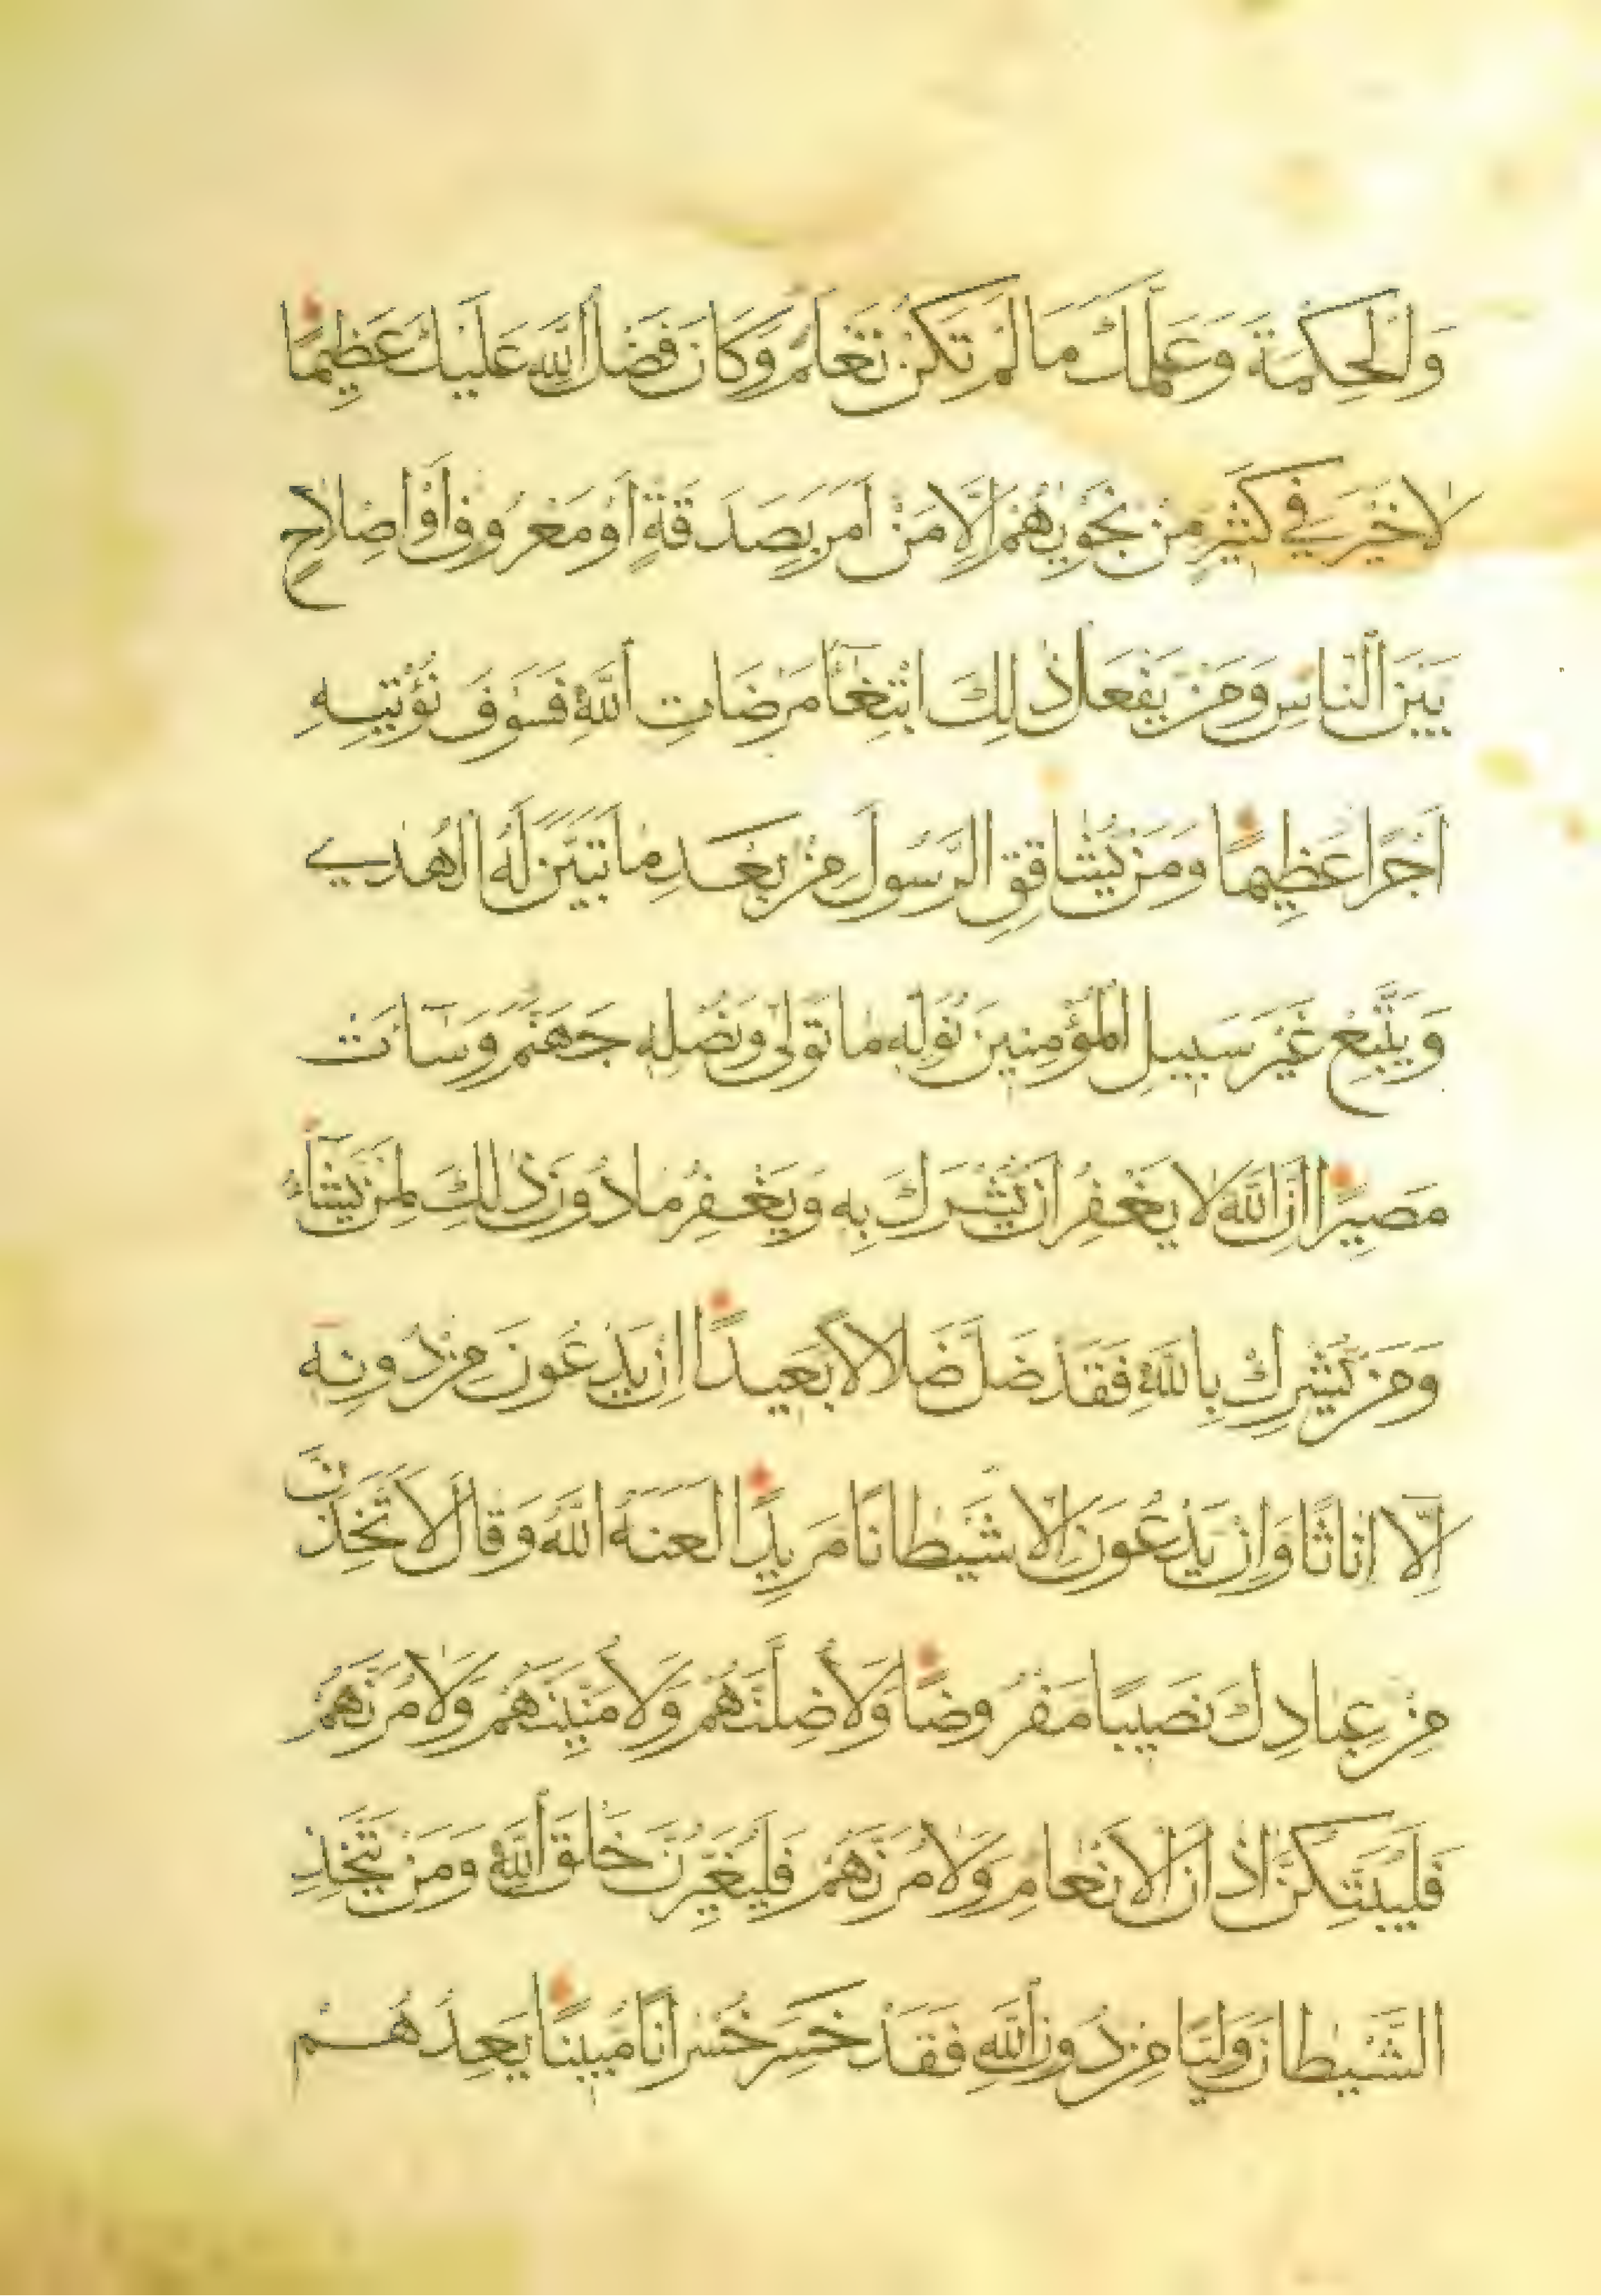 وَالْحِكْمَةَ وَعَلَّمَكَ مَا لَمْ تَكُنْ تَعْلَمُ وَكَانَ فَضْلُ اللَّهِ عَلَيْكَ عَظِيمًا
لَا خَيْرَ فِي كَثِيرٍ مِنْ نَجْوٰيهُمْ اِلَّا مَنْ اَمَرَ بِصَدَقَةٍ اَوْ مَعْرُوفٍ اَوْ اِصْلَاحٍ
بَيْنَ النَّاسِ وَمَنْ يَفْعَلْ ذٰلِكَ ابْتِغَآءَ مَرْضَاتِ اللَّهِ فَسَوْفَ نُؤْتِيهِ
اَجْرًا عَظِيمًا وَمَنْ يُشَاقِقِ الرَّسُولَ مِنْ بَعْدِ مَا تَبَيَّنَ لَهُ الْهُدٰى
وَيَتَّبِعْ غَيْرَ سَبِيلِ الْمُؤْمِنِينَ نُوَلِّهِ مَا تَوَلّٰى وَنُصْلِهِ جَهَنَّمَ وَسَآءَتْ
مَصِيرًا اِنَّ اللَّهَ لَا يَغْفِرُ اَنْ يُشْرَكَ بِهِ وَيَغْفِرُ مَا دُونَ ذٰلِكَ لِمَنْ يَشَآءُ
وَمَنْ يُشْرِكْ بِاللَّهِ فَقَدْ ضَلَّ ضَلَالًا بَعِيدًا اِنْ يَدْعُونَ مِنْ دُونِهِ
اِلَّا اِنَاثًا وَاِنْ يَدْعُونَ اِلَّا شَيْطَانًا مَرِيدًا لَعَنَهُ اللَّهُ وَقَالَ لَاَتَّخِذَنَّ
مِنْ عِبَادِكَ نَصِيبًا مَفْرُوضًا وَلَأُضِلَّنَّهُمْ وَلَأُمَنِّيَنَّهُمْ وَلَاٰمُرَنَّهُمْ
فَلَيُبَتِّكُنَّ اٰذَانَ الْاَنْعَامِ وَلَاٰمُرَنَّهُمْ فَلَيُغَيِّرُنَّ خَلْقَ اللَّهِ وَمَنْ يَتَّخِذِ
الشَّيْطَانَ وَلِيًّا مِنْ دُونِ اللَّهِ فَقَدْ خَسِرَ خُسْرَانًا مُبِينًا يَعِدُهُمْ